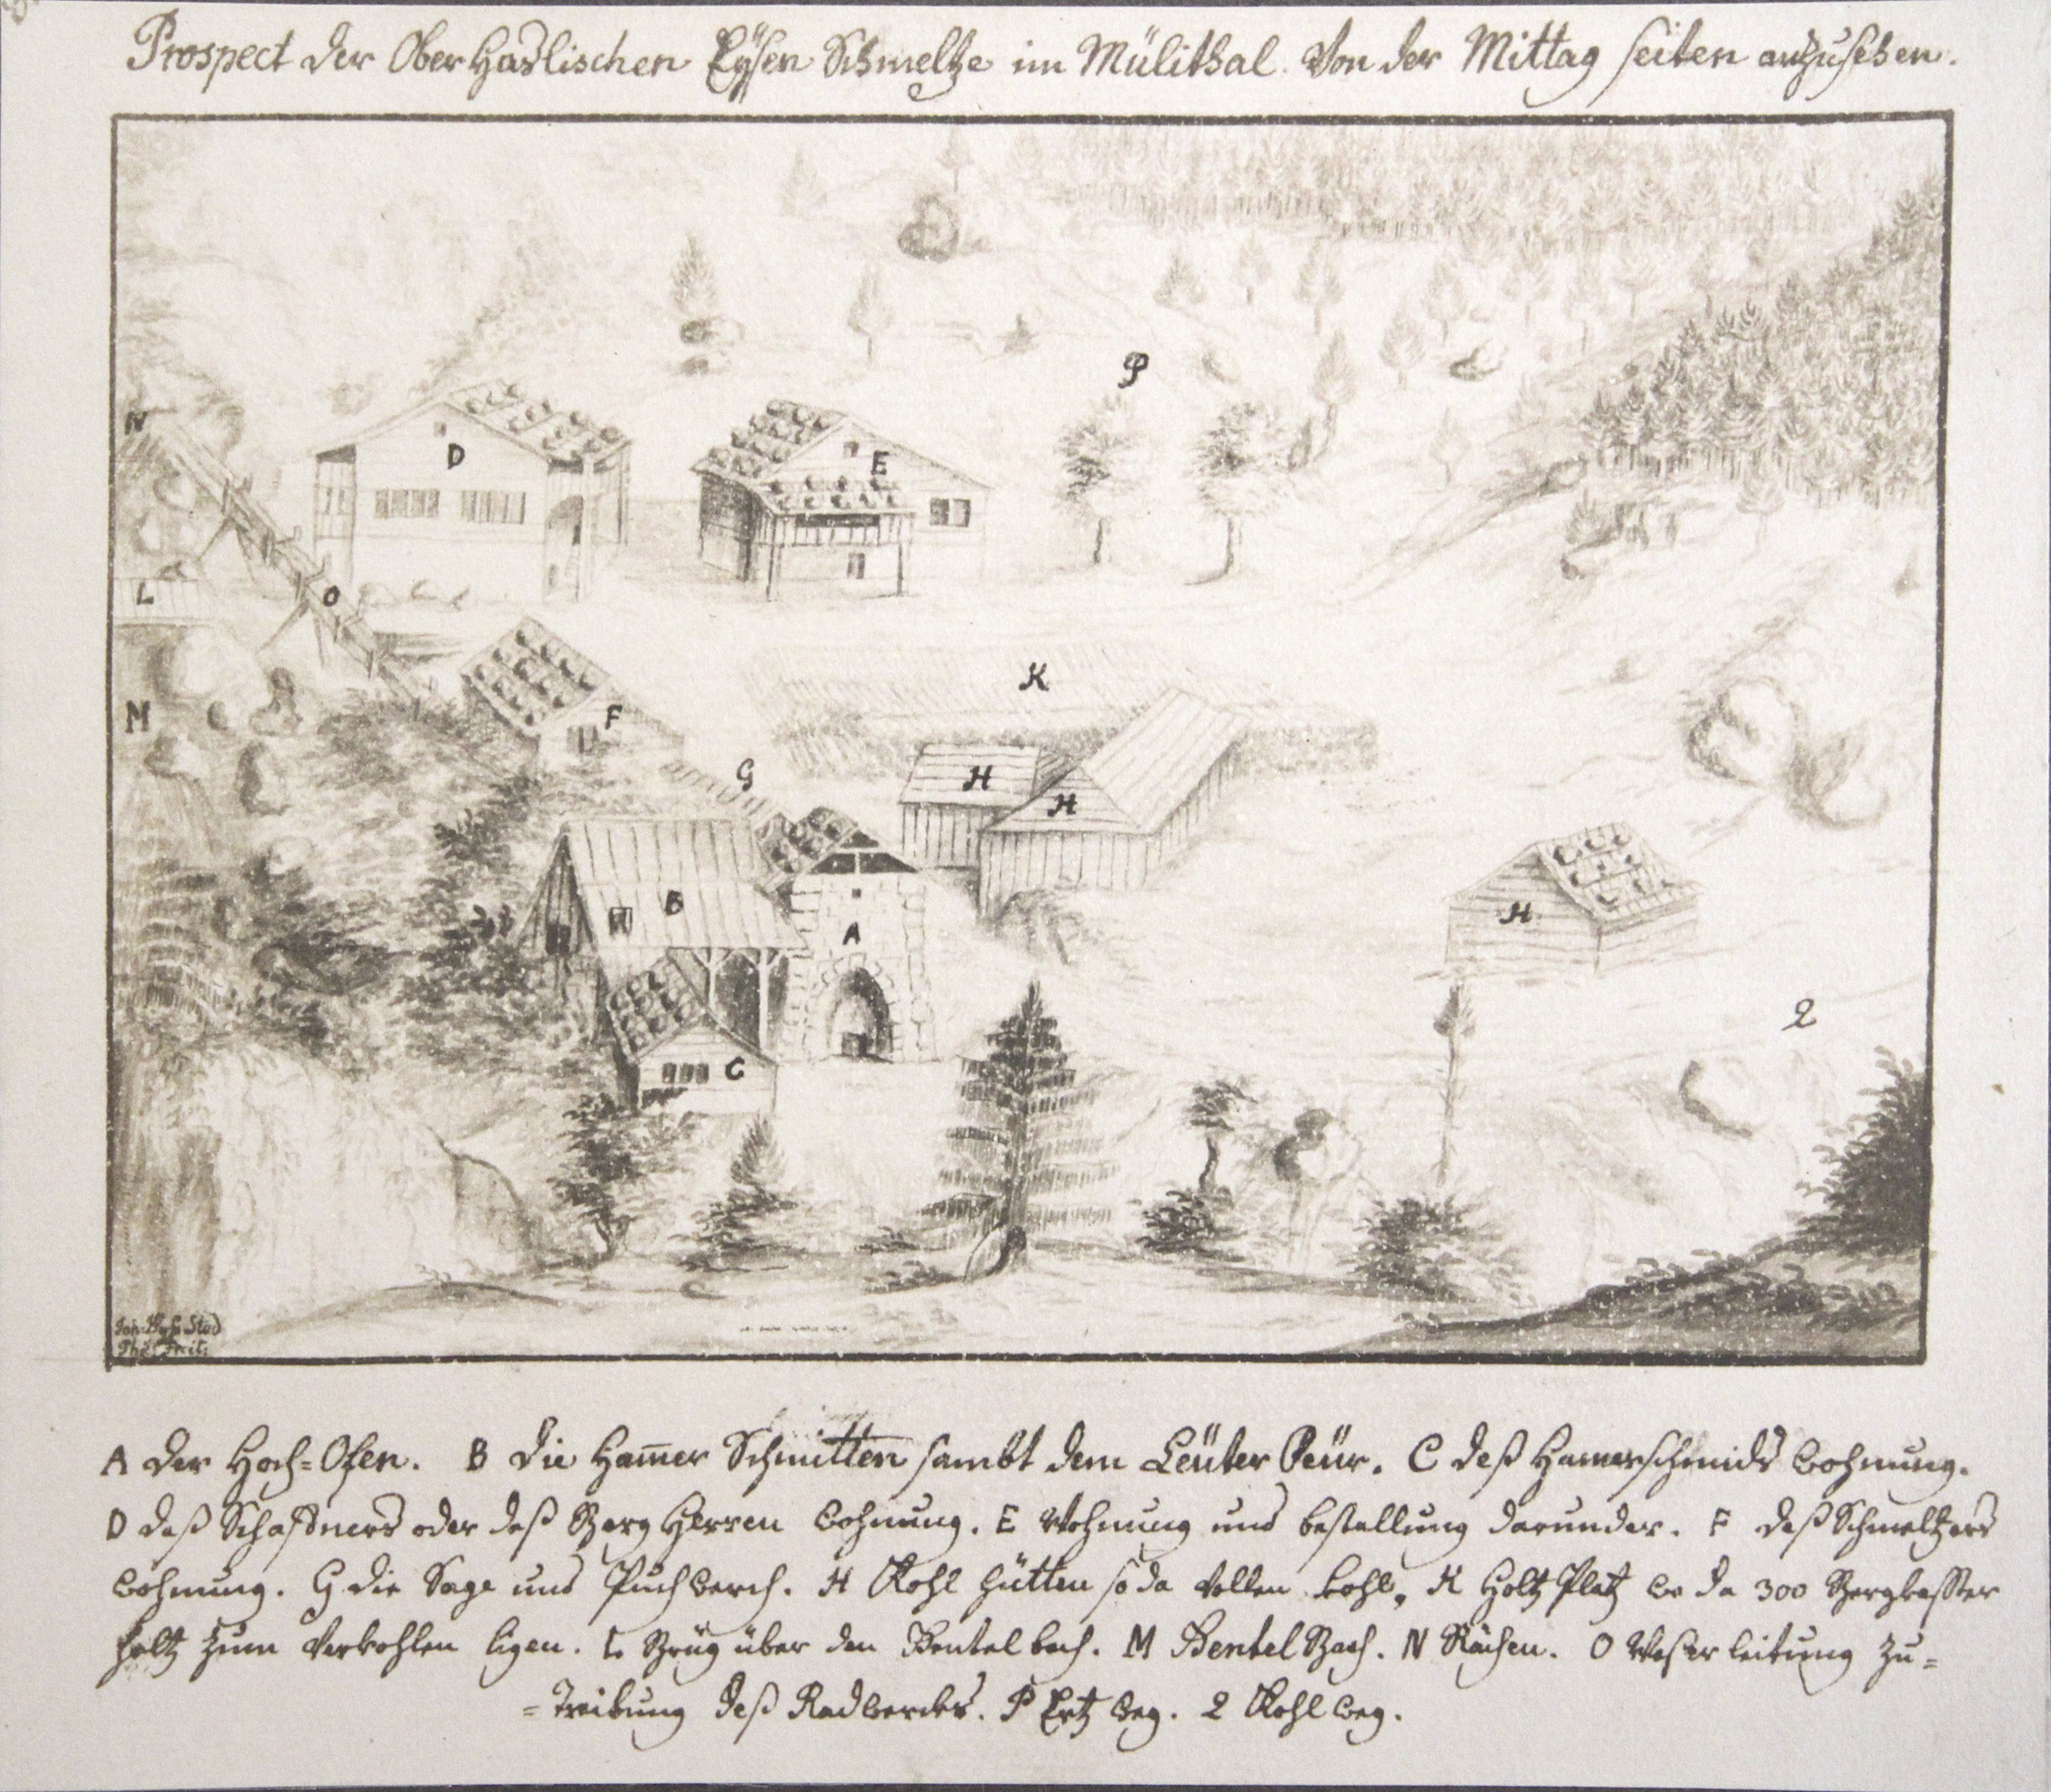 Prospect der Ober Haslischen Eÿsen Schmeltze im Mülithal. Von der Mittag seiten anzusehen.
N
P
D
E
L
O
K
M
F
G
H
H
B
A
H
C
Q
Joh:
A der Hoch=Ofen. B Die Ham̄er Schmitten sambt dem Leüter Feür. C deß Hamerschmids wohnung.
D deß Schaffners oder deß Berg Herren wohnung. E Wohnung und bestallung darunder. F deß Schmeltzers
wohnung. G die Sage und Puchwerch. H Kohl hütten so da vollen kohl, K Holtz Platz wo da 300 Bergklaffter
holtz zum verkohlen ligen. L Brüg über den Bentelbach. M Bentel Bach. N Rächen. O Wasserleitung zu=
=Treibung deß Radwercks. P Ertz weg. Q Kohlweg.